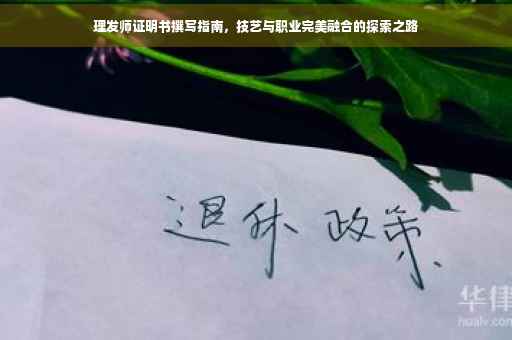 理发师证明书撰写指南，技艺与职业完美融合的探索之路
退休 政策
华律
hualv.com